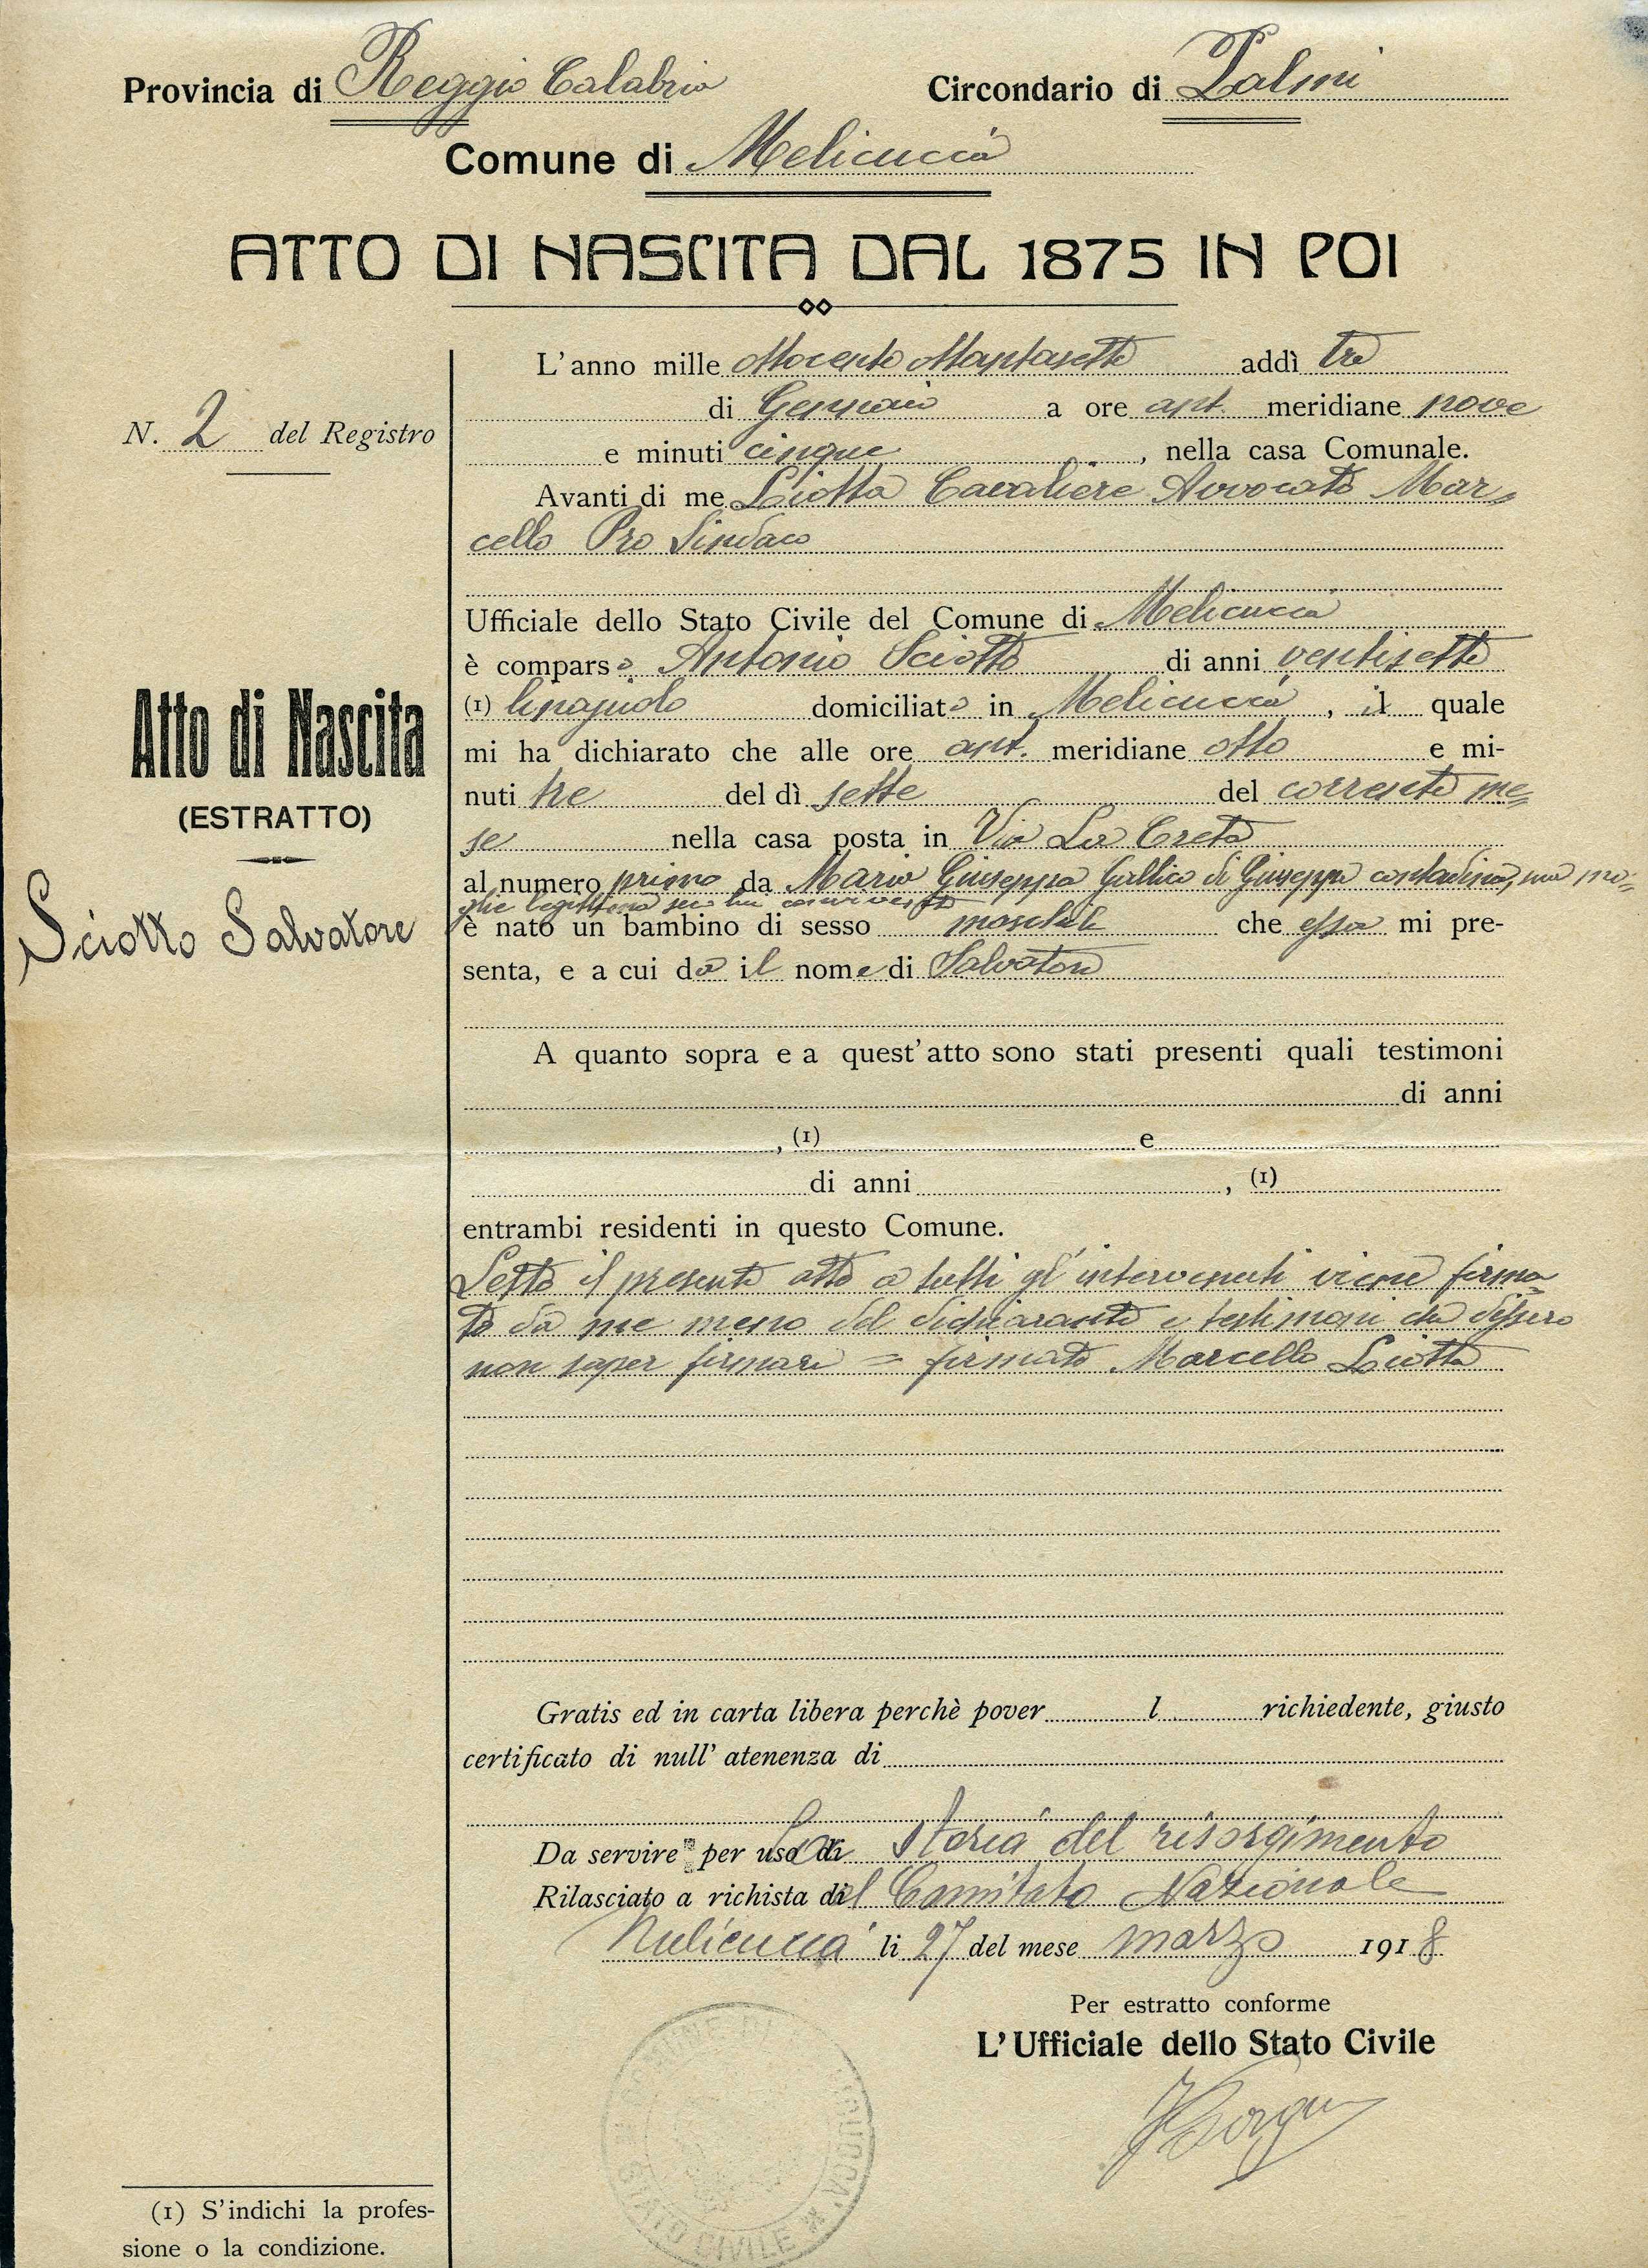 Provincia di Reggio Calabria Circondario di Palmi
Comune di Melicuccà
ATTO DI NASCITA DAL 1875 IN POI
N. 2 del Registro
Atto di Nascita
(ESTRATTO)
Sciotto Salvatore
L'anno mille ottocento ottantasette addì tre
di Gennaio a ore ant. meridiane nove
e minuti cinque, nella casa Comunale.
Avanti di me Liotta Cavaliere Avvocato Mar
cello Pro Sindaco
Ufficiale dello Stato Civile del Comune di Melicuccà
è comparso Antonio Sciotto di anni ventisette
(1) domiciliato in Melicuccà, il quale
mi ha dichiarato che alle ore ant. meridiane otto e mi-
nuti tre del dì sette del corrente me=
se nella casa posta in Via La Creta
al numero primo da Maria Giuseppa Gallico di Giuseppe contadina, sua mo=
glie legittima seco lui convivente
è nato un bambino di sesso maschile che essa mi pre-
senta, e a cui da il nome di Salvatore
A quanto sopra e a quest'atto sono stati presenti quali testimoni
di anni
, (1) e
di anni , (1)
entrambi residenti in questo Comune.
Letto il presente atto a tutti gl'intervenuti viene firma
to da me meno del dichiarante e testimoni che dissero
non saper firmare = firmato Marcello Liotta
Gratis ed in carta libera perchè pover l richiedente, giusto
certificato di null'atenenza di
Da servire per uso La Storia del risorgimento
Rilasciato a richista del Comitato Nazionale
Melicuccà li 27 del mese marzo 1918
Per estratto conforme
L'Ufficiale dello Stato Civile
COMUNE DI
STATO CIVILE
(1) S'indichi la profes-
sione o la condizione.